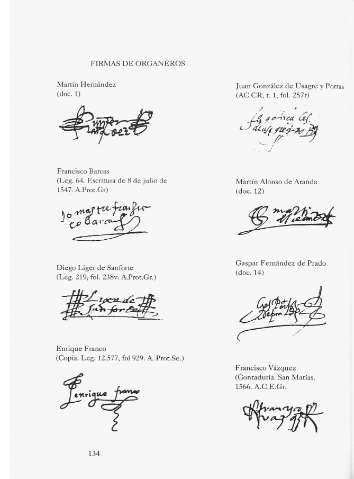 FIRMAS DE ORGANEROS
Martín Hernández
(doc. 1)
Francisco Barcas
(Leg. 64. Escritura de 8 de julio de
1547. A.Prot.Gr)
Jo maestre françis
co Barcas
Diego Líger de Sanforte
(Leg. 219, fol. 238v. A.Prot.Gr.)
Liger de
San forte
Enrique Franco
(Copia. Leg. 12.577, fol 929. A. Prot.Se.)
enrique franco
134
Juan González de Usagre y Porras
(AC.CR, t. 1, fol. 257r)
Martín Alonso de Aranda
(doc. 12)
Gaspar Fernández de Prado
(doc. 14)
Francisco Vázquez
(Contaduría. San Matías.
1566. A.C.E.Gr.